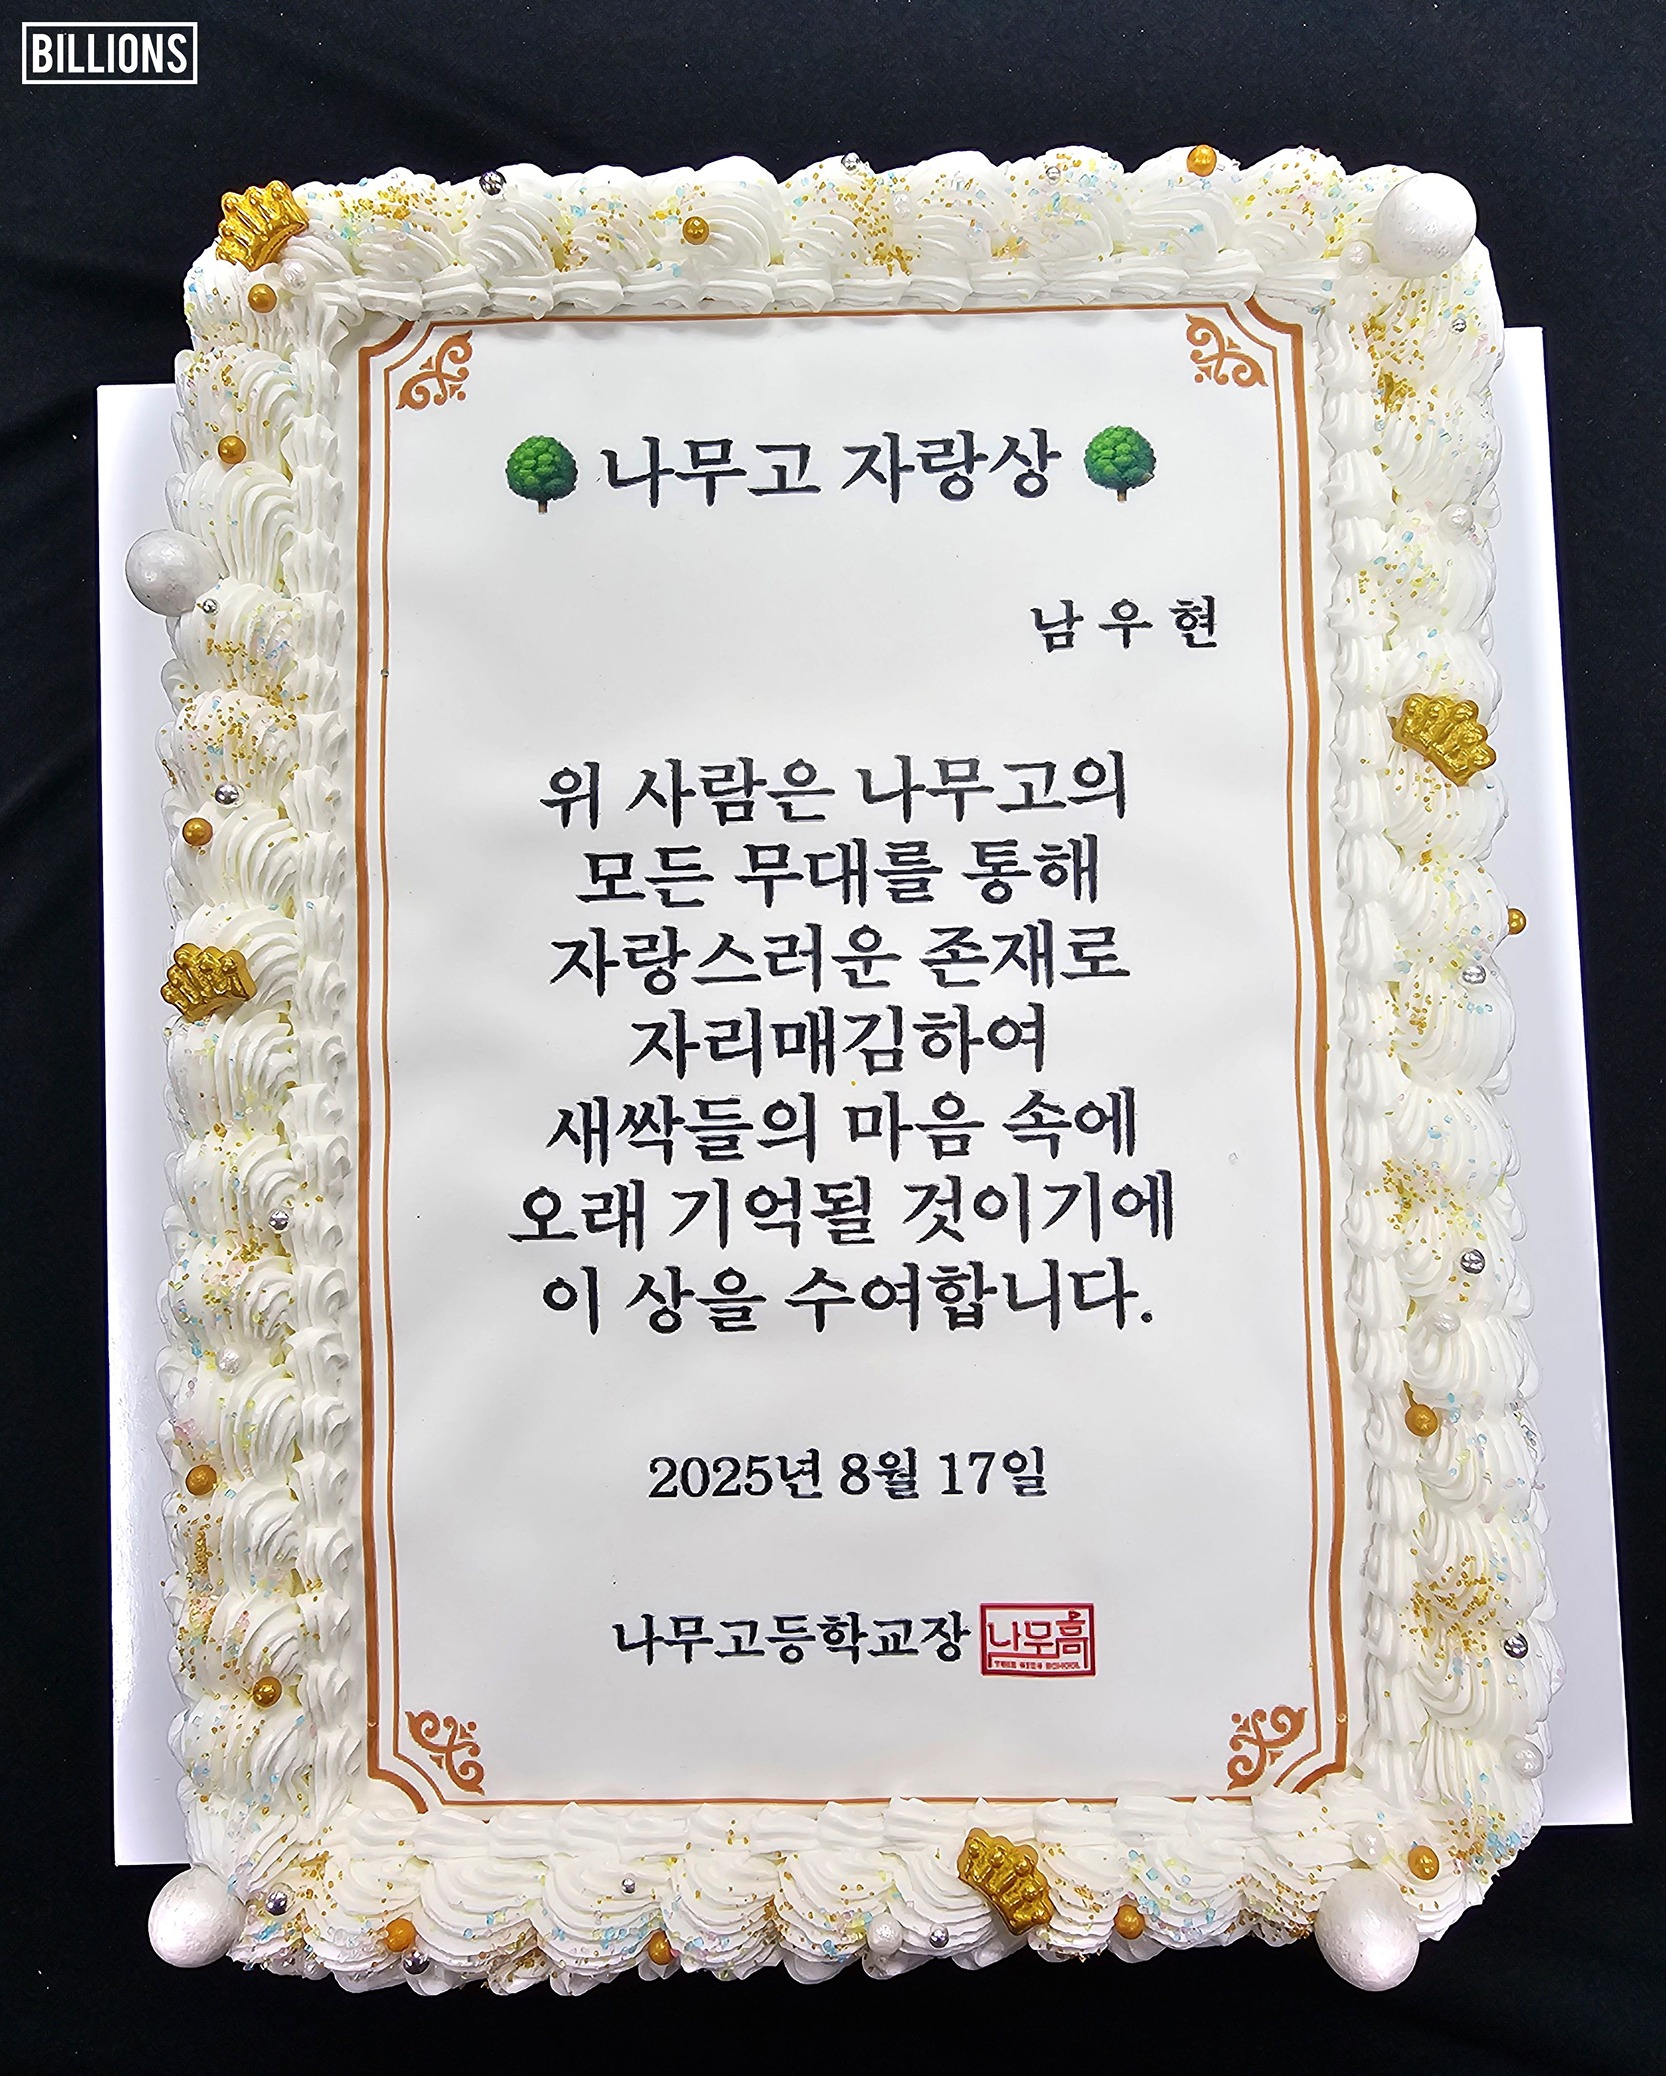 BILLIONS
나무고 자랑상
남우현
위 사람은 나무고의
모든 무대를 통해
자랑스러운 존재로
자리매김하여
새싹들의 마음 속에
오래 기억될 것이기에
이 상을 수여합니다.
2025년 8월 17일
나무고등학교장
나무